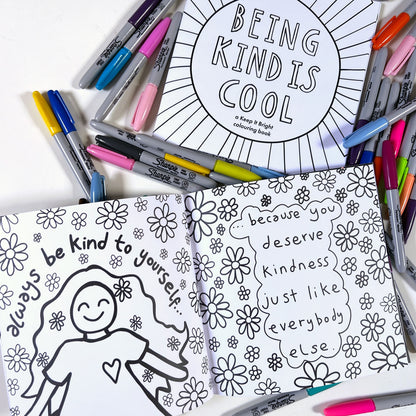 BEING
KIND IS
COOL
a Keep it Bright
colouring book
always be kind to yourself...
...because you
deserve
kindness
just like
everybody
else.
Sharpie
Sharpie
Sharpie